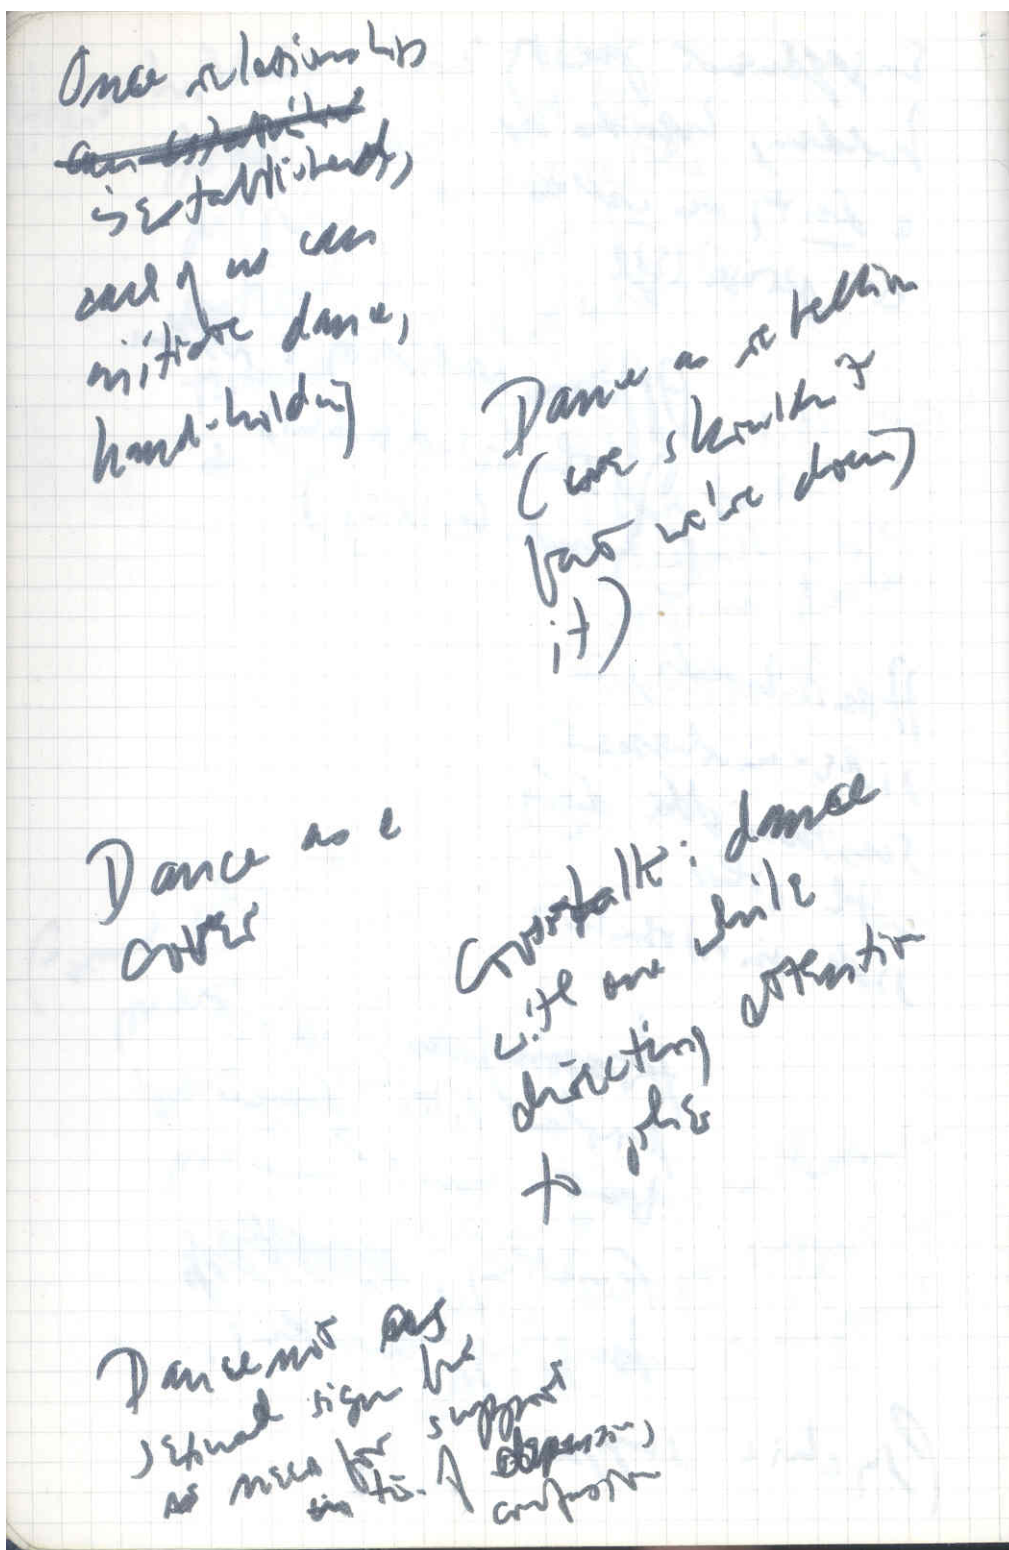 Once relationships
is established,
each of us can
initiate dance,
hand-holding
Dance as rebellion
(we shouldn't
but we're doing
it)
Dance as a
cover
Crosstalk: dance
with one while
directing attention
to other
Dance not as
sexual sign but
as need for support
in time of depression,
confusion